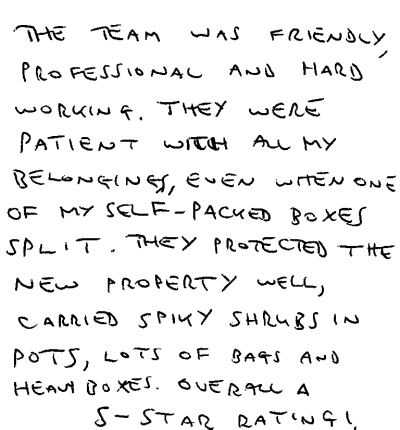 THE TEAM WAS FRIENDLY,
PROFESSIONAL AND HARD
WORKING. THEY WERE
PATIENT WITH ALL MY
BELONGINGS, EVEN WHEN ONE
OF MY SELF-PACKED BOXES
SPLIT. THEY PROTECTED THE
NEW PROPERTY WELL,
CARRIED SPIKY SHRUBS IN
POTS, LOTS OF BAGS AND
HEAVY BOXES. OVERALL A
5-STAR RATING!